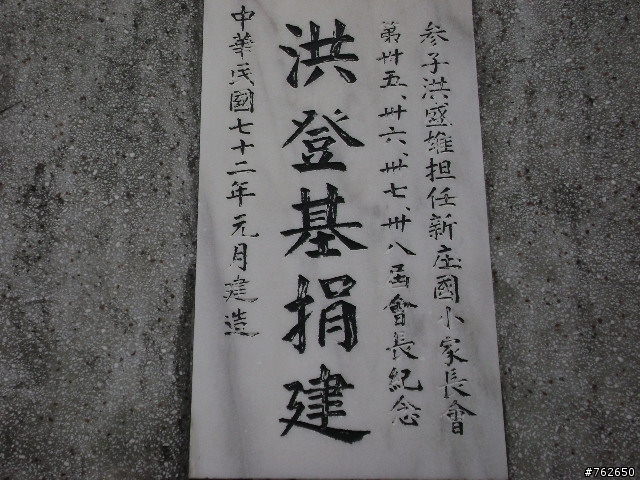 参子洪盛雄担任新庄國小家長會
第卅五、卅六、卅七、卅八屆會長紀念
洪登基捐建
中華民國七十二年元月建造
#762650